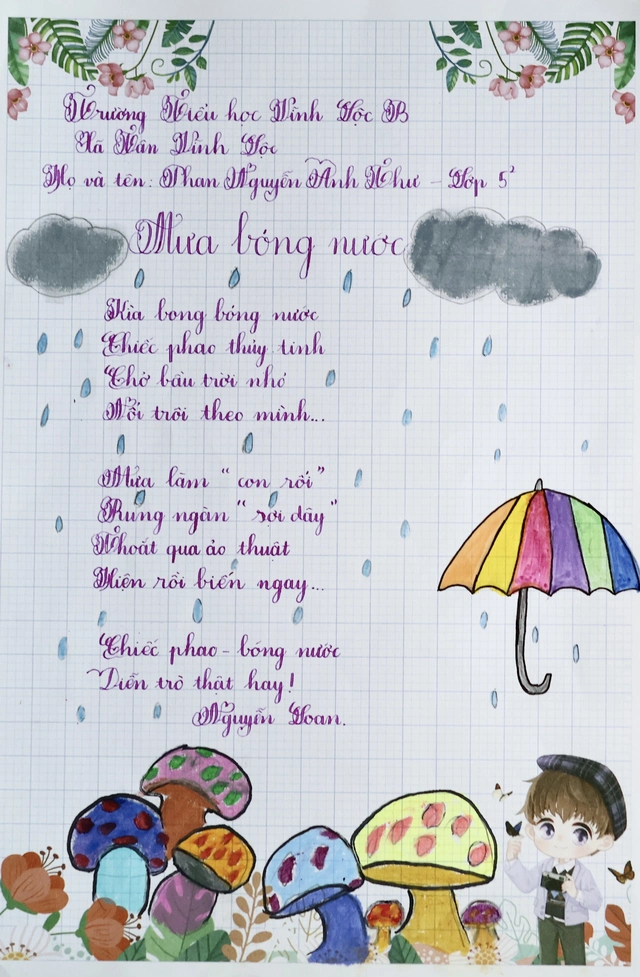 Trường Tiểu học Vĩnh Lộc B
Xã Tân Vĩnh Lộc
Họ và tên: Phan Nguyễn Ánh Như - Lớp 5²
Mưa bóng nước
Kìa bong bóng nước
Chiếc phao thủy tinh
Chở bầu trời nhỏ
Nổi trôi theo mình...
Mưa làm " con rối "
Rung ngàn " sợi dây "
Thoắt qua ảo thuật
Hiện rồi biến ngay...
Chiếc phao - bóng nước
Diễn trò thật hay!
Nguyễn Loan.